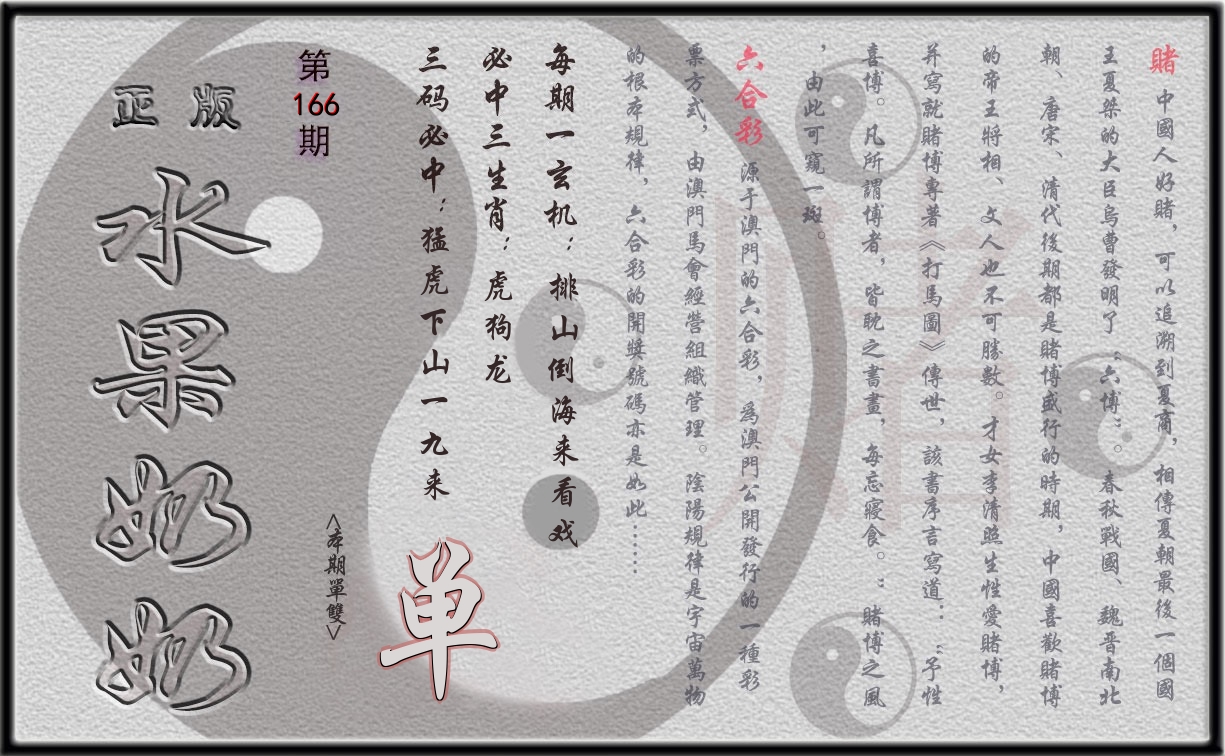 賭 中國人好賭，可以追溯到夏商，相傳夏朝最後一個國
王夏桀的大臣烏曹發明了“六博”。春秋戰國、魏晋南北
朝、唐宋、清代後期都是賭博盛行的時期，中國喜歡賭博
的帝王將相、文人也不可勝數。才女李清照生性愛賭博，
并寫就賭博專著《打馬圖》傳世，該書序言寫道：“予性
喜博。凡所謂博者，皆耽之晝，每忘寢食。”賭博之風
，由此可窺一斑。
六合彩 源于澳門的六合彩，為澳門公開發行的一種彩
票方式，由澳門馬會經營組織管理。陰陽規律是宇宙萬物
的根本規律，六合彩的開獎號碼亦是如此……
每期一玄机：排山倒海来看戏
必中三生肖：虎狗龙
三码必中：猛虎下山一九来
单
<本期單雙>
第
166
期
正版
水果奶奶
賭